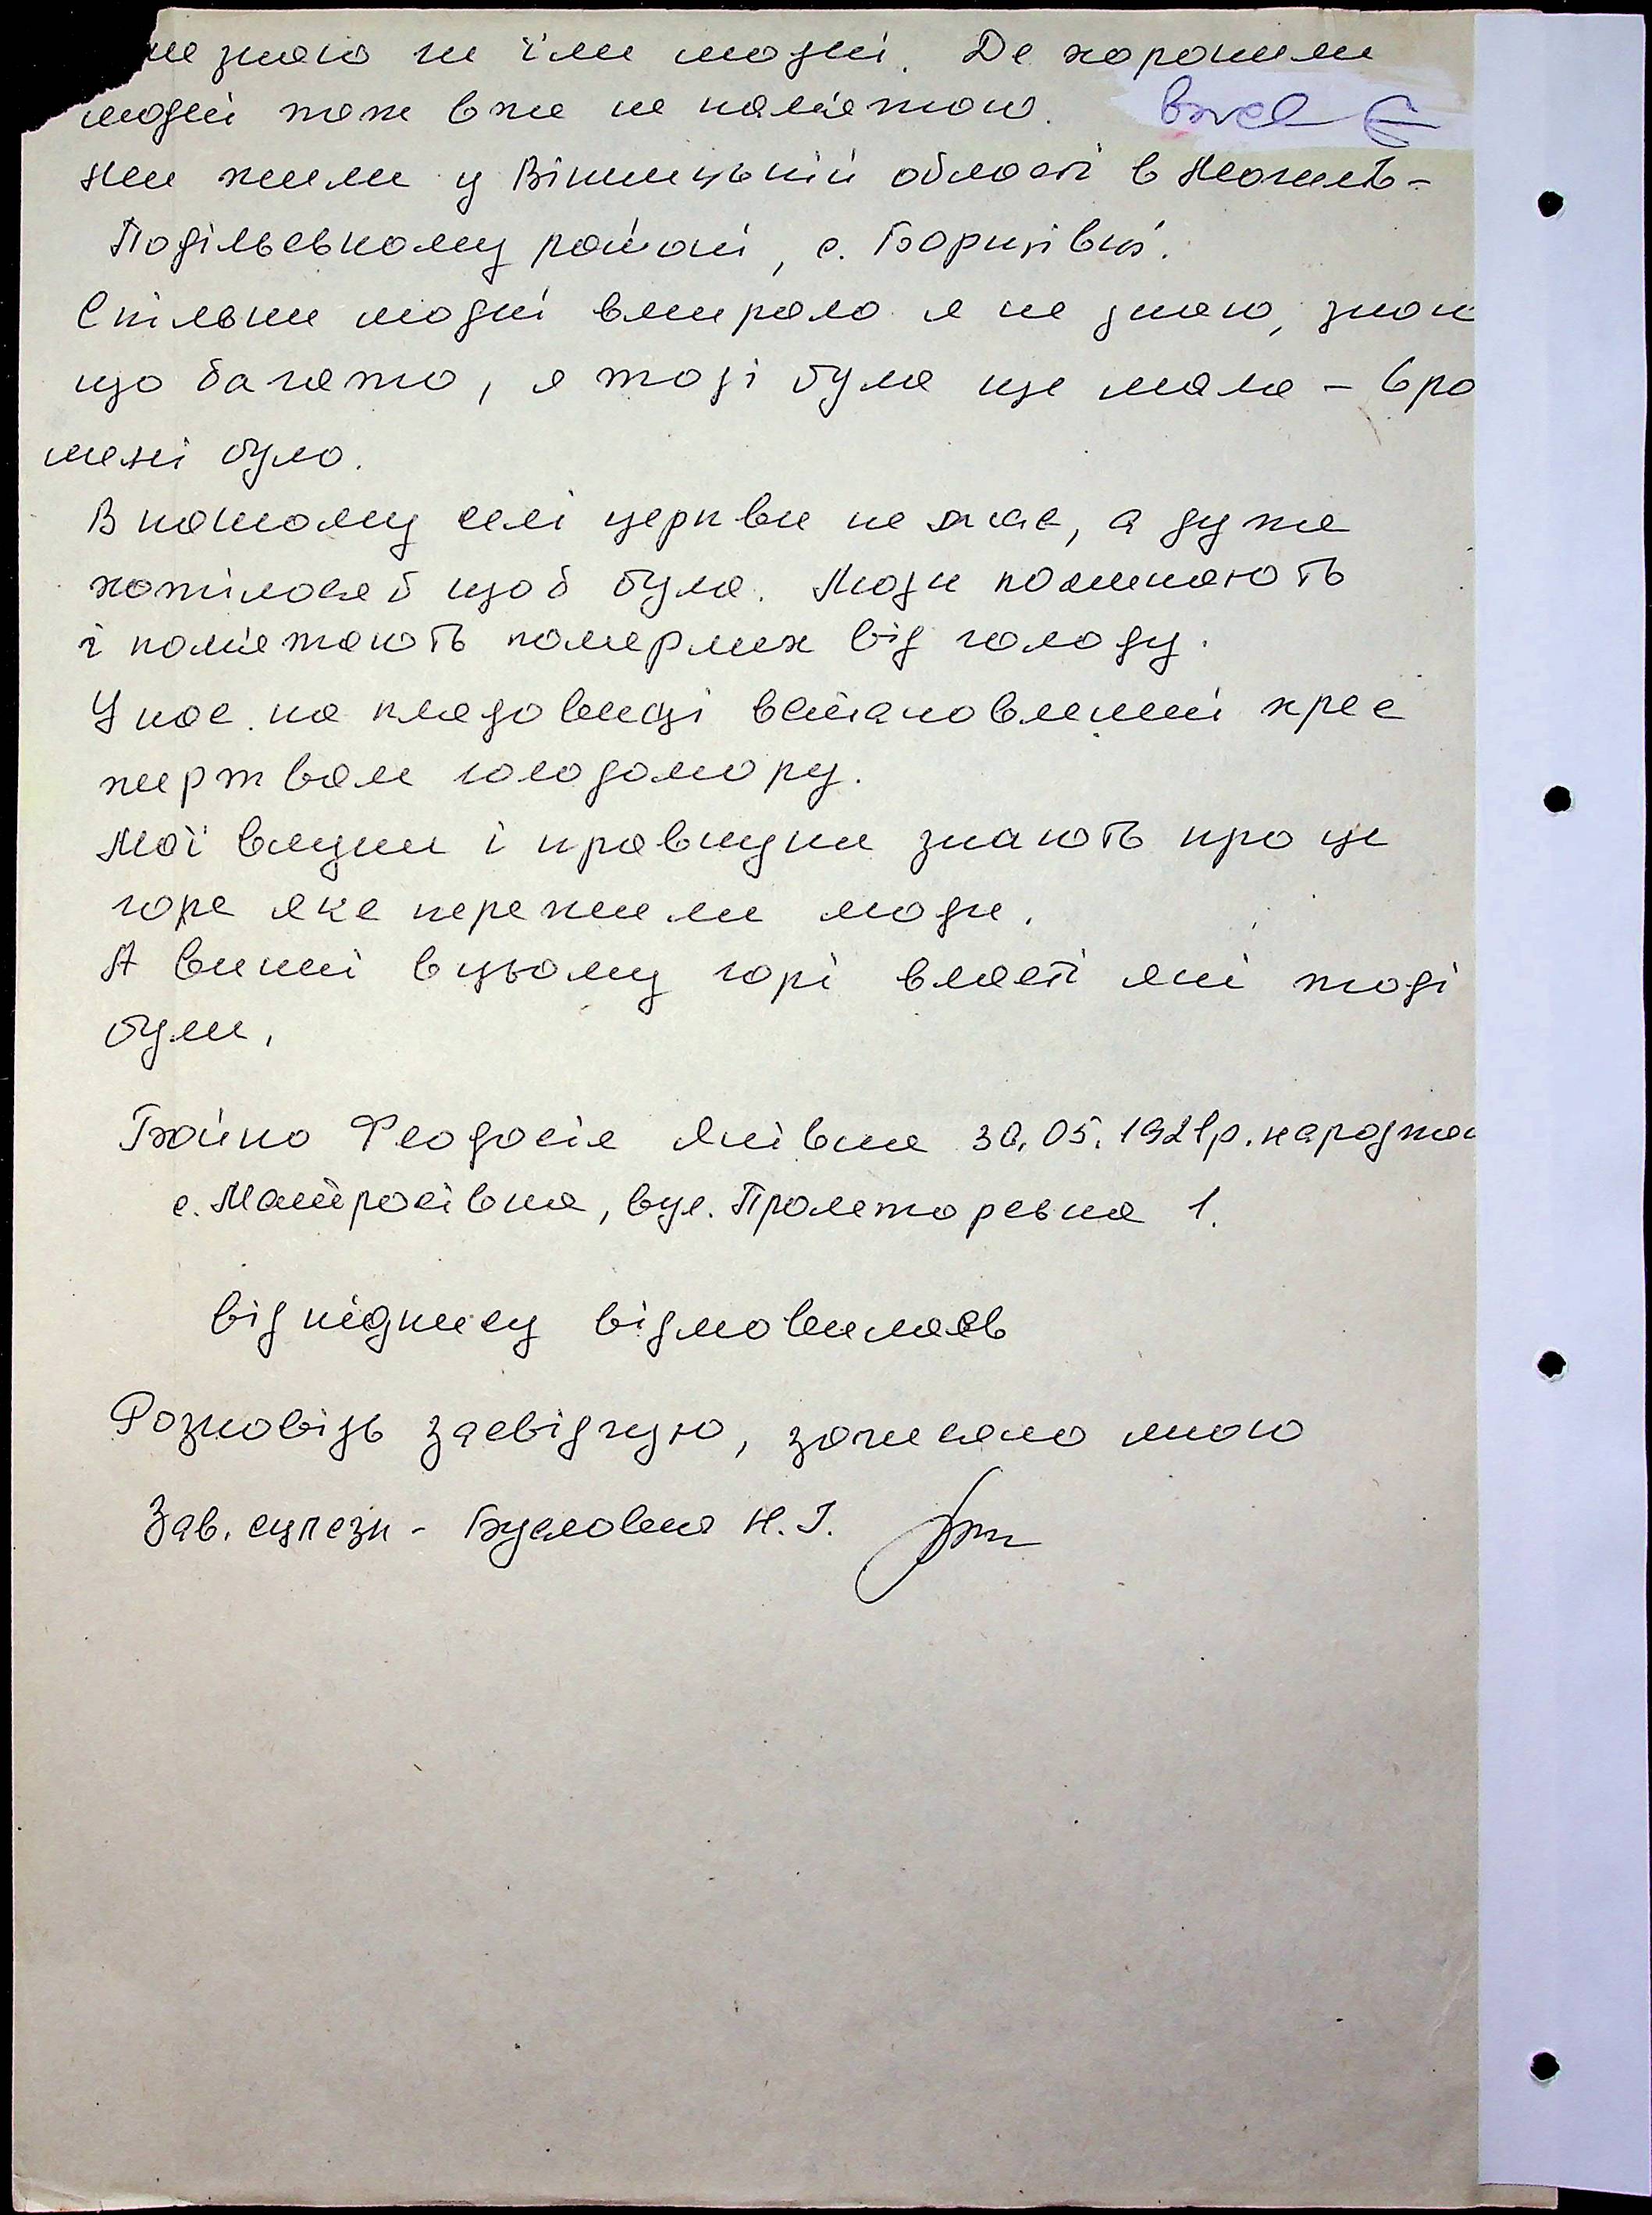 не знаю чи їли людей. Де хоронили
людей теж вже не памʼятаю.
Ми жили у Вінницькій області в Могилів-
Подільському районі, с. Боришівка.
Скільки людей вмирало я не знаю, знаю
що багато, я тоді була ще мала - 6 ро
мені було.
В нашому селі церкви не має, а дуже
хотілося б щоб була. Люди поминають
і памʼятають померлих від голоду.
У нас на кладовищі встановлений хрес
жертвам голодомору.
Мої внуки і правнуки знають про це
горе яке пережили люди.
А винні в цьому горі власті які тоді
були.
Бойко Феодосія Яківна 30.05.1921р. народжен
с. Матросівка, вул. Пролетарська 1.
від підпису відмовилась
Розповідь засвідчую, записано мною
Зав. сцпсзн - Буслович Н. І.